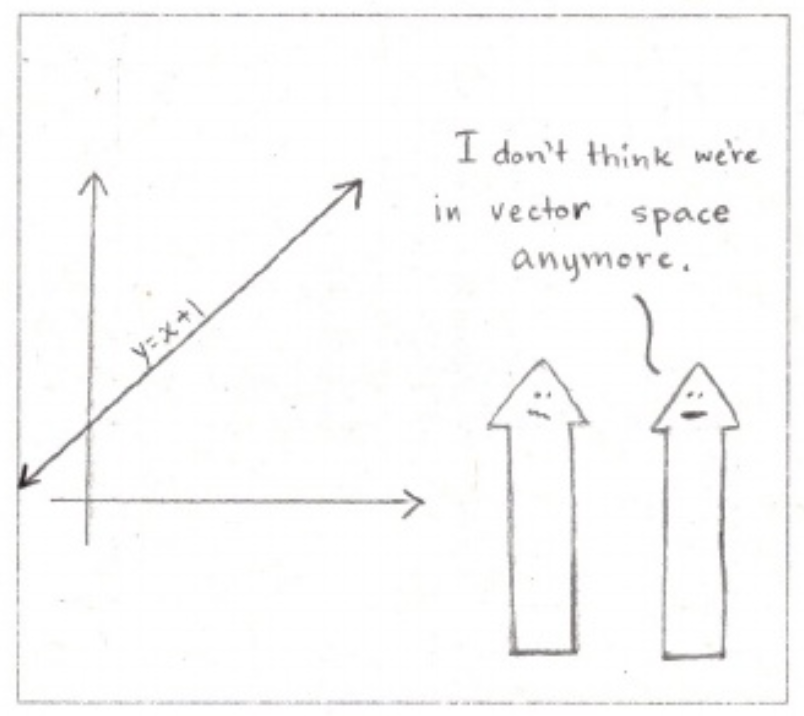 I don't think we're
in vector space
anymore.
y=x+1